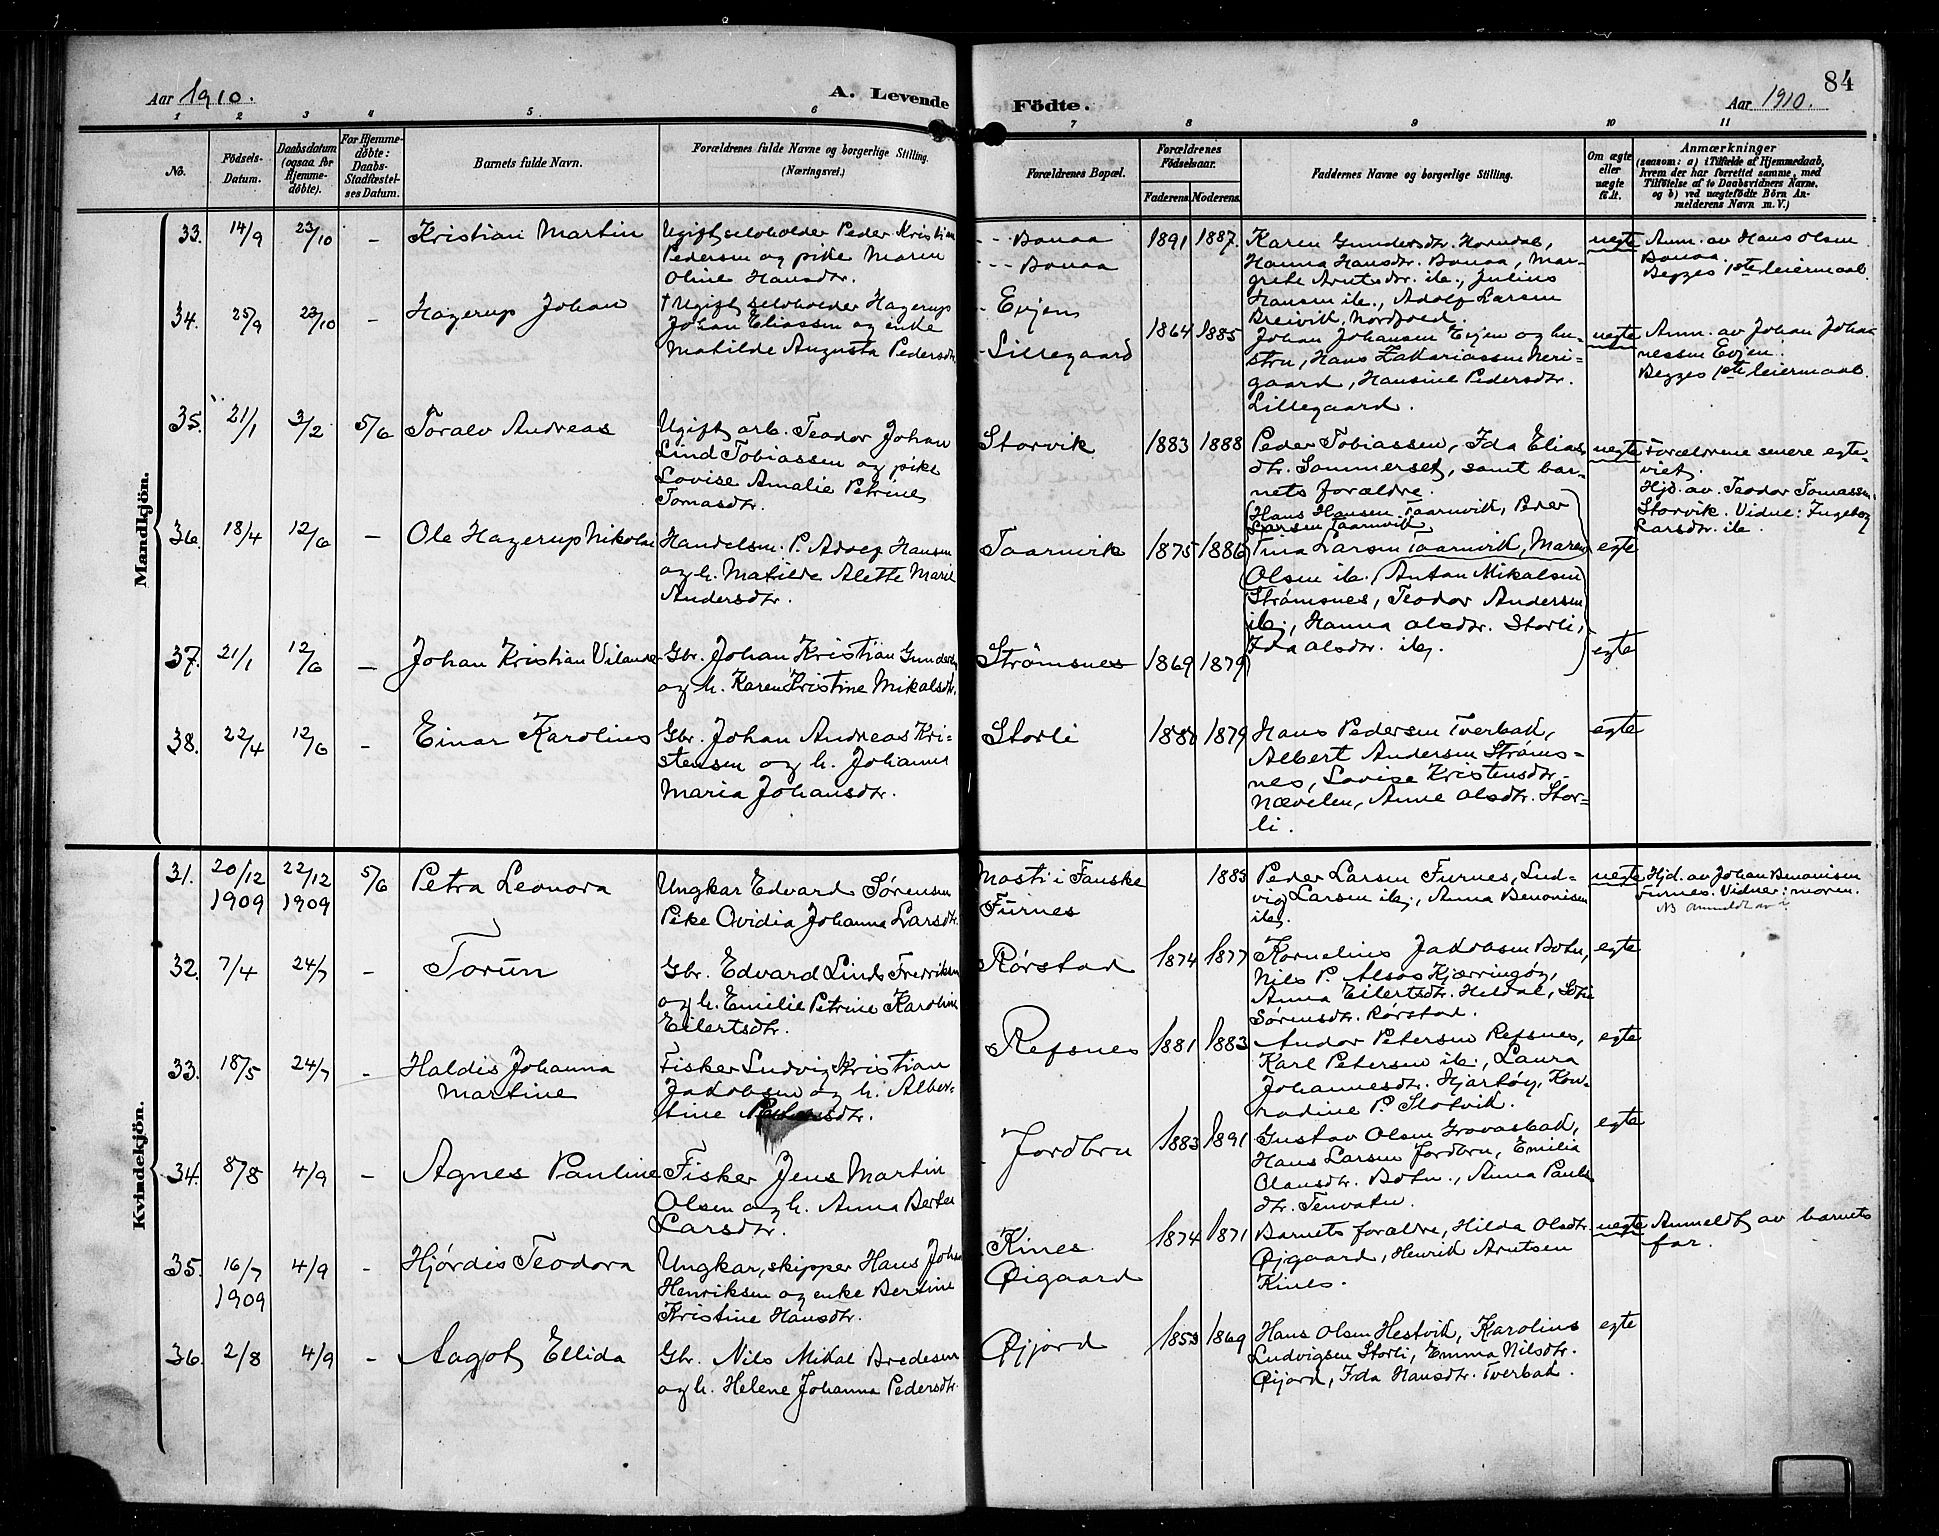 84
Aar 1910.
A. Levende Födte.
Aar 1910.
1 2 3 4 5. 6 7 8 9 10 11
No.
Födsels-Datum.
Daabsdatum (ogsaa for Hjemme-döbte).
For Hjemme-döbte: Daabs-Stadfæstel-ses Datum.
Barnets fulde Navn.
Forældrenes fulde Navne og borgerlige Stilling. (Næringsvei.)
Forældrenes Bopæl.
Forældrenes Födselsaar.
Faderens. Moderens.
Faddernes Navne og borgerlige Stilling.
Om ægte eller uægte født.
Anmærkninger
(saasom: a) i Tilfælde af Hjemmedaab, hvem der har forrettet samme, med Tilføielse af to Daabsvidners Navne, og b) ved uægtefödte Börn Anmelderens Navn m. V.)
Mandkjön.
33. 14/9 23/10 - Kristian Martin
Ugift selvholder Peder Kristian
Pedersen og pike Maren
Oline Hansdtr.
Bonaa
Bonaa
1891 1887.
Karen Gundersdtr. Horndal,
Hanna Hansdtr. Bonaa, Mar-
grete Arntsdtr. ib., Julius
Hansen ib., Adolf Larsen
Breivik, Nordfold.
uegte
Anm. av Hans Olsen
Bonaa.
Begges 1ste leiermaal.
34. 25/9 23/10 - Hagerup Johan
† Ugift selvholder Hagerup
Johan Eliassen og enke
Matilde Augusta Pedersdtr.
Evjen
Lillegaard
1864 1885
Johan Johansen Evjen og hu-
stru, Hans Zakariassen Neri-
gaard, Hansine Pedersdtr.
Lillegaard.
uegte
Anm. av Johan Johan
nessen Evjen.
Begges 1ste leiermaal.
35. 21/1 3/2 5/6 Toralv Andreas
Ugift arb. Teodor Johan
Lind Tobiassen og pike
Lovise Amalie Petrine
Tomasdtr.
Storvik
1883 1888
Peder Tobiassen, Ida Elias
dtr. Sommerset, samt bar-
nets forældre.
uegte
Forældrene senere egte-
viet.
Hjd. av Teodor Tomassen
Storvik. Vidne: Ingeborg
Larsdtr. ib.
36. 18/4 12/6 - Ole Hagerup Nikolai
Handelsm. P. Adolf Hansen
og h. Matilde Alette Marie
Andersdtr.
Taarnvik
1875 1886
Hans Hansen Taarnvik, Peder
Larsen Taarnvik
Tina Larsen Taarnvik, Maren
Olsen ib.
egte
37. 21/1 12/6 - Johan Kristian Vilande
Gbr. Johan Kristian Gundersen
og h. Karen Kristine Mikalsdtr.
Strømsnes
1869 1879
Anton Mikalsen
Strømsnes, Teodor Andersen
ib., Hanna Olsdtr. Storli,
Ida Olsdtr. ib.
egte
38. 22/4 12/6 - Einar Karolius
Gbr. Johan Andreas Kri-
stensen og h. Johanna
Maria Johansdtr.
Storli
1880 1879
Hans Pedersen Tverbak,
Albert Andersen Strøms-
nes, Lovise Kristensdtr.
Nævelen, Anne Olsdtr. Stor-
li.
egte
Kvindekjön.
31. 20/12 1909 22/12 1909 5/6 Petra Leonora
Ungkar Edvard Sørensen
Pike Ovidia Johanna Larsdtr.
Mosti i Fauske
Furnes
1883
Peder Larsen Furnes, Lud-
vig Larsen ib., Anna Benonisen
ib.
uegte
Hjd. av Johan Benonisen
Furnes. Vidner: moren.
NB anmeldt av
32. 7/4 24/7 - Torün
Gbr. Edvard Lind Fredriksen
og h. Emilie Petrine Karoline
Eilertsdtr.
Rørstad
1874 1877
Kornelius Jakobsen Botn,
Nils P. Alsos Kjærringøy,
Anna Eilertsdtr. Heldal, Sofie
Sørensdtr. Rørstad.
egte
33. 18/5 24/7 - Haldis Johanna
Martine
Fisker Ludvig Kristian
Jakobsen og h. Alber-
tine Petersdtr.
Refsnes
1881 1883
Andor Petersen Refsnes,
Karl Petersen ib., Laura
Johannesdtr. Hjartøy, Kon-
radine P. Slotvik.
egte
34. 8/8 4/9 - Agnes Pauline
Fisker Jens Martin
Olsen og h. Anna Bertea
Larsdtr.
Jordbru
1883 1891
Gustav Olsen Grovasbak,
Hans Larsen Jordbru, Emilie
Olausdtr. Botn., Anna Pauls
dtr. Tenvatn.
egte
35. 16/7 1909 4/9 - Hjørdis Teodora
Ungkar, skipper Hans Johan
Henriksen og enke Bertine
Kristine Hansdtr.
Kines
Øigaard
1874 1871
Barnets forældre, Hilda Olsdtr.
Øigaard, Henrik Arntsen
Kines.
uegte
Anmeldt av barnets
far.
36. 2/8 4/9 - Aagot Ellida
Gbr. Nils Mikal Bredesen
og h. Helene Johanna Pedersdtr.
Øijord
1853 1869
Hans Olsen Hestvik, Karolius
Ludvigsen Storli, Emma Nilsdtr.
Øijord, Ida Hansdtr. Tverbak.
egte